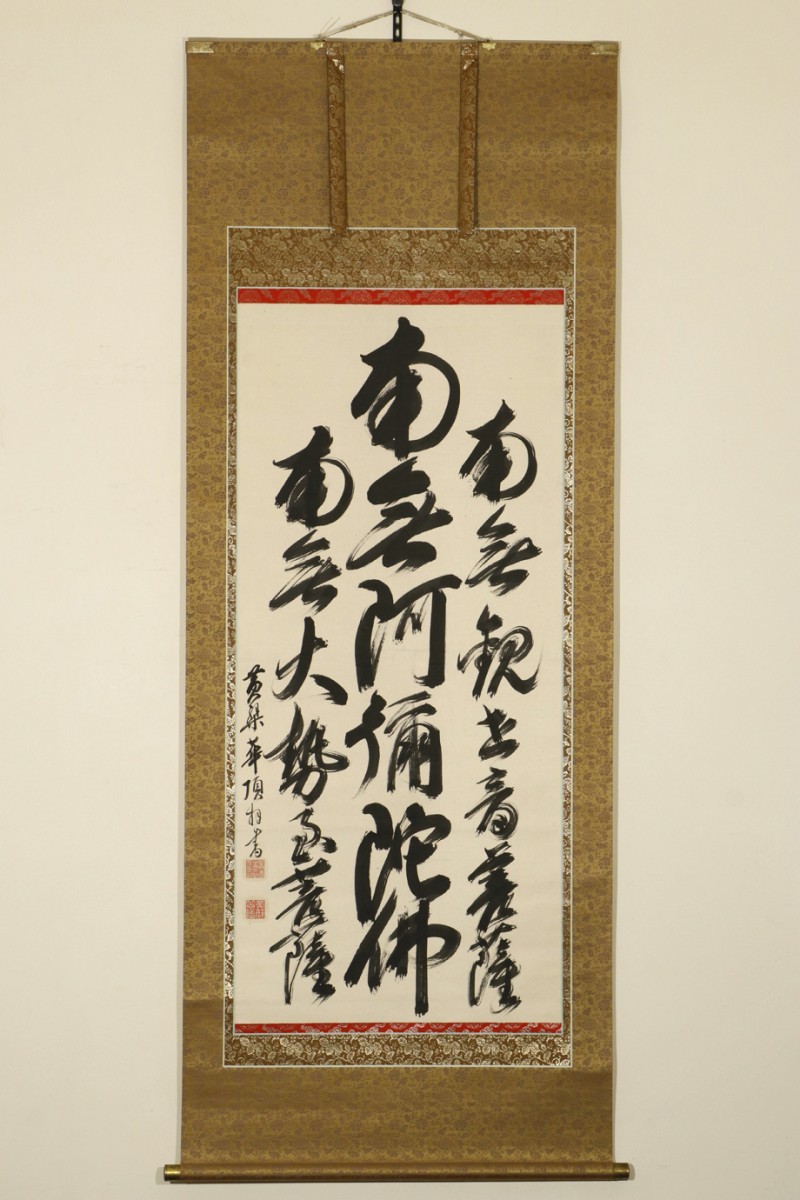 南無觀世音菩薩
南無阿彌陀佛
南無大勢至菩薩
黄檗華頂 書